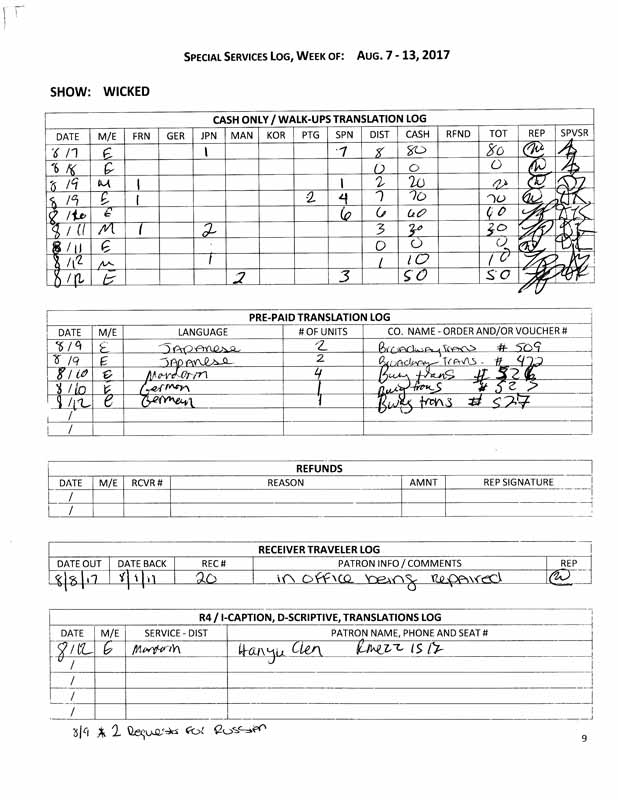 SPECIAL SERVICES LOG, WEEK OF: AUG. 7 - 13, 2017
SHOW: WICKED
CASH ONLY / WALK-UPS TRANSLATION LOG
DATE M/E FRN GER JPN MAN KOR PTG SPN DIST CASH RFND TOT REP SPVSR
8/7 E 1 7 8 80 80
8/8 E 0 0 0
8/9 M 1 1 2 20 20
8/9 E 1 2 4 7 70 70
8/10 E 6 6 60 60
8/11 M 1 2 3 30 30
8/11 E 0 0 0
8/12 M 1 1 10 10
8/12 E 2 3 50 50
PRE-PAID TRANSLATION LOG
DATE M/E LANGUAGE # OF UNITS CO. NAME - ORDER AND/OR VOUCHER #
8/9 E JAPANESE 2 BROADWAY TRANS # 509
8/9 E JAPANESE 2 BROADWAY TRANS. # 422
8/10 E 4 Bway trans # 526
8/10 E German 1 Bway trans # 525
8/12 E German 1 Bway trans # 527
/
/
REFUNDS
DATE M/E RCVR # REASON AMNT REP SIGNATURE
/
/
RECEIVER TRAVELER LOG
DATE OUT DATE BACK REC # PATRON INFO / COMMENTS REP
8/8/17 20 in office being repaired
R4 / I-CAPTION, D-SCRIPTIVE, TRANSLATIONS LOG
DATE M/E SERVICE - DIST PATRON NAME, PHONE AND SEAT #
8/12 E Hanyu
/
/
/
/
8/9 * 2 Requests FOR RUSSIAN
9